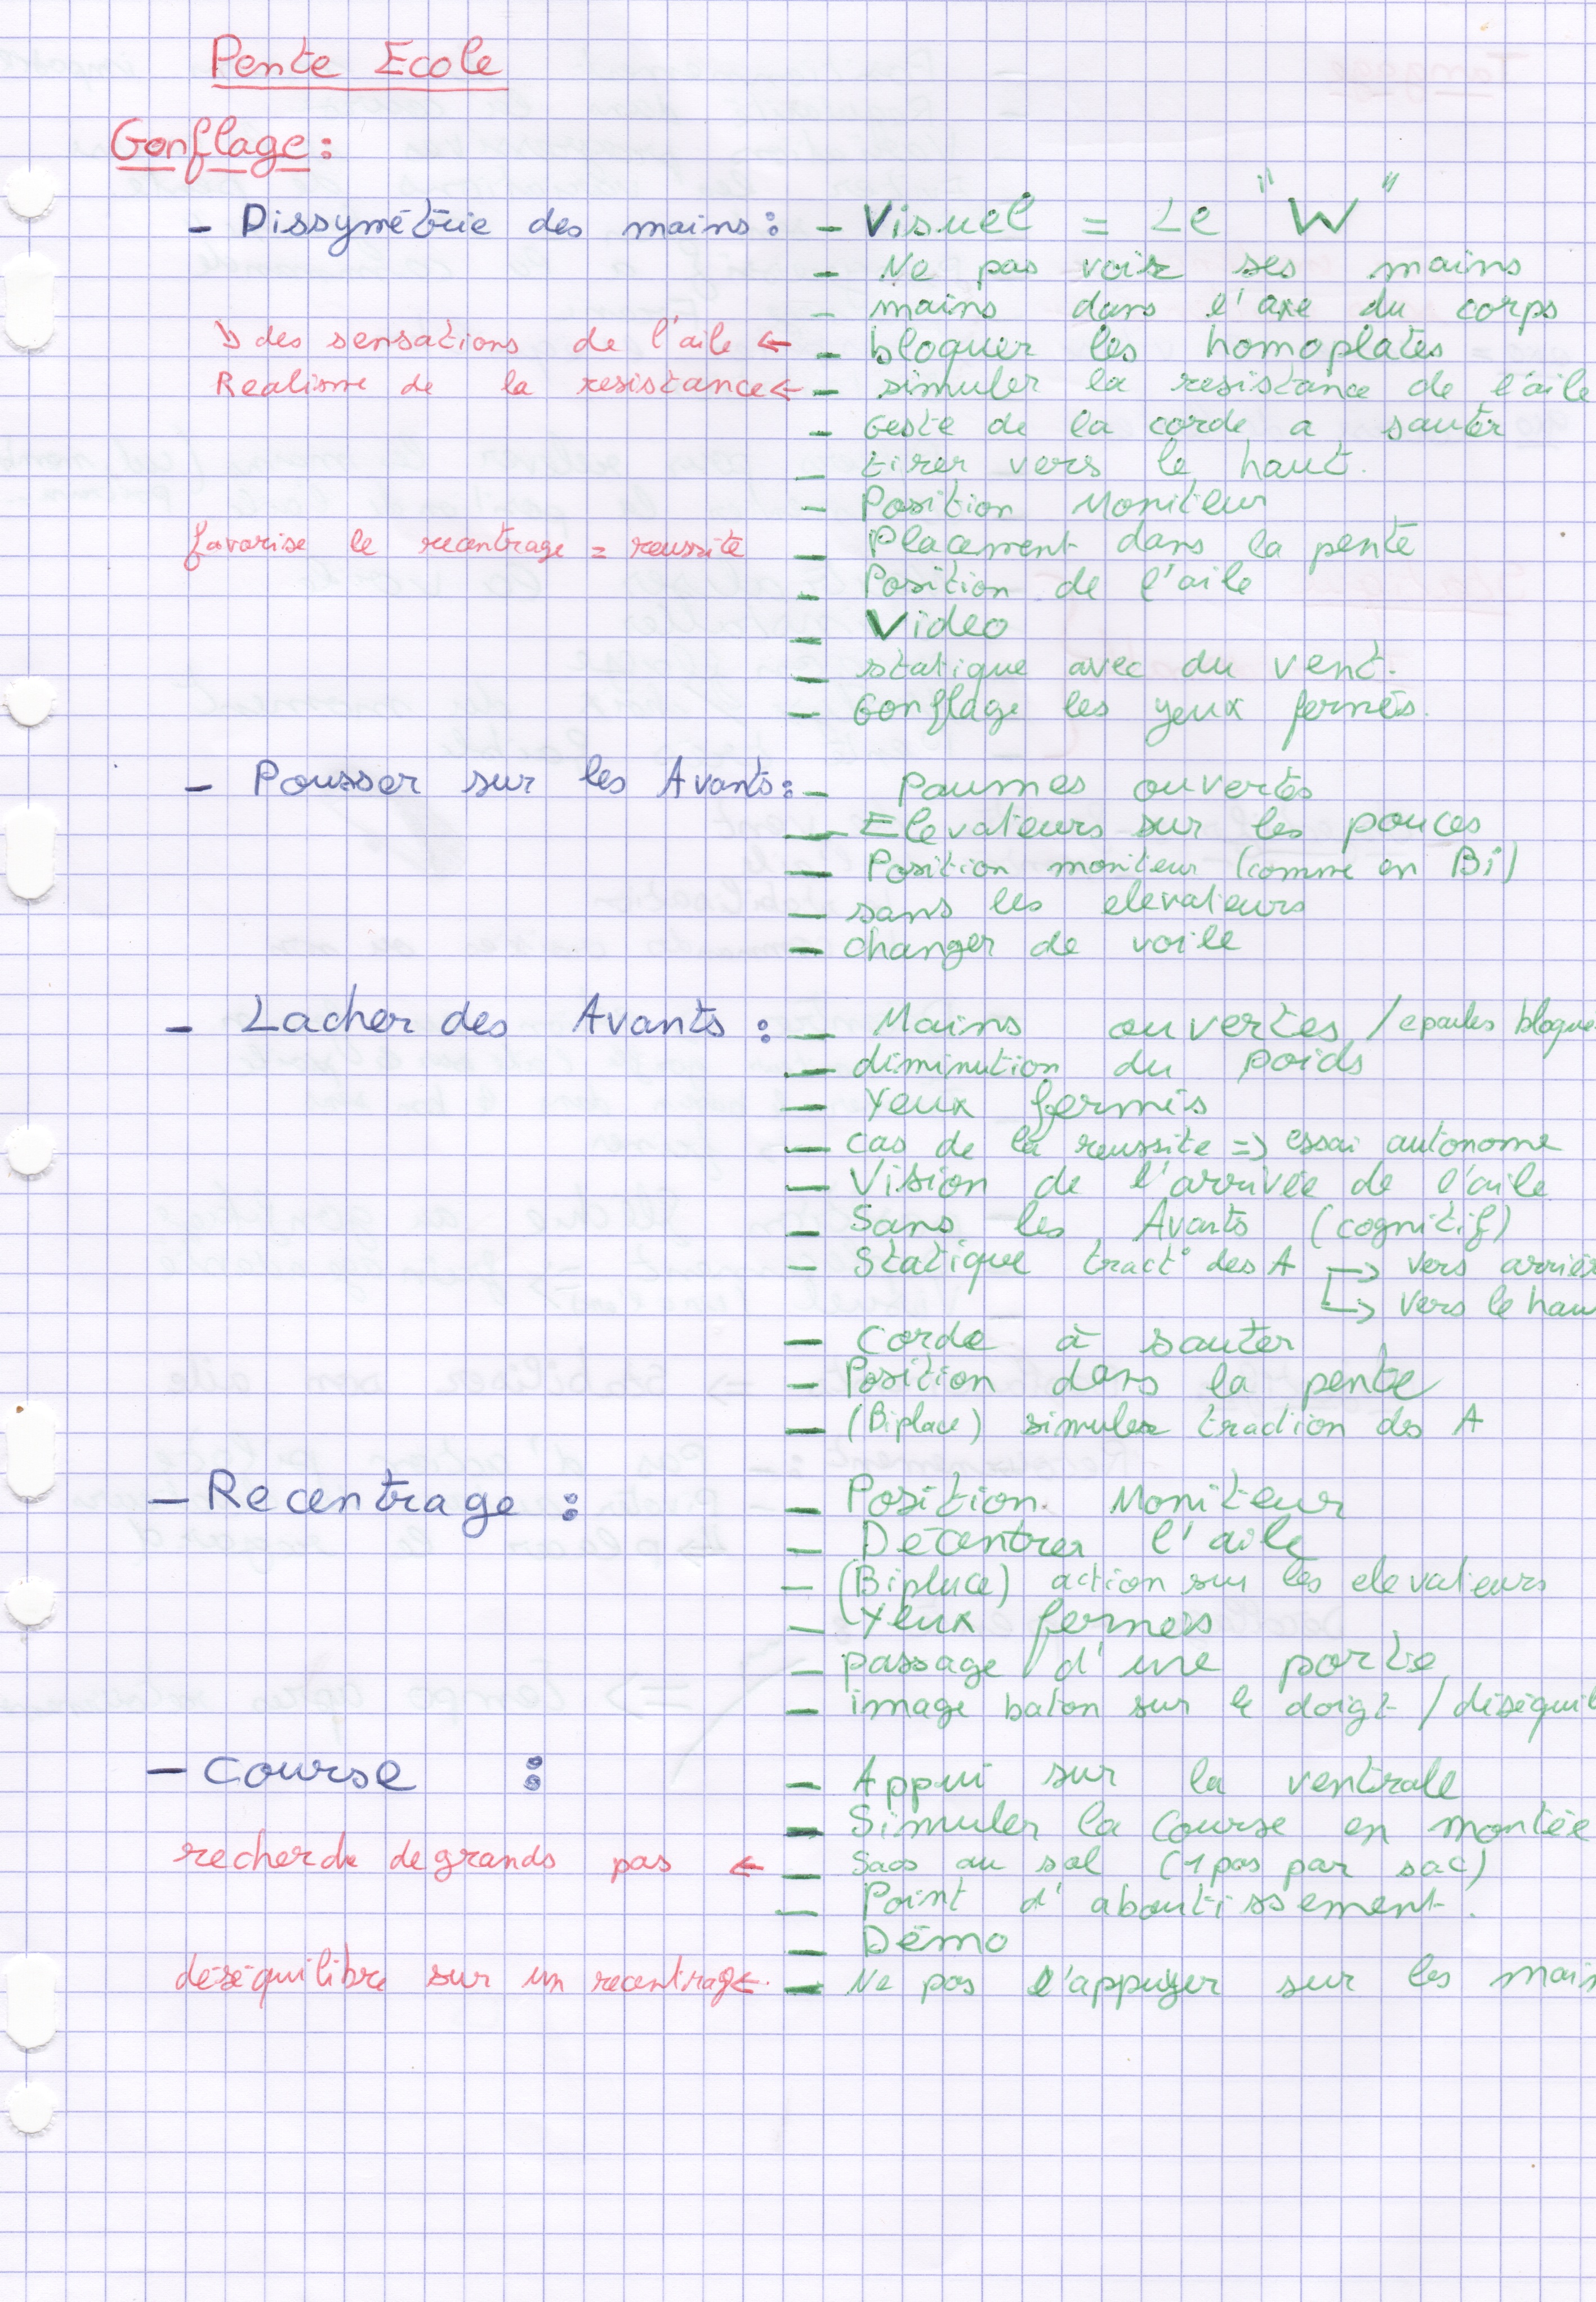 Pente Ecole
Gonflage :
- Dissymétrie des mains : - Visuel = Le "W"
- Ne pas voir ses mains
- mains dans l'axe du corps
↘ des sensations de l'aile ← - bloquer les homoplates
Realisme de la resistance ← - simuler la resistance de l'aile
- Geste de la corde a sauter
- tirer vers le haut.
- Position Moniteur
favorise le recentrage = reussite - Placement dans la pente
- Position de l'aile
- Video
- statique avec du vent.
- Gonflage les yeux fermés.
- Pousser sur les Avants : - Paumes ouvertes
- Elevateurs sur les pouces
- Position moniteur (comme en Bi)
- sans les elevateurs
- changer de voile
- Lacher des Avants : - Mains ouvertes / epaules bloque
- diminution du poids
- Yeux fermés
- cas de la reussite => essai autonome
- Vision de l'arrivée de l'aile
- Sans les Avants (cognitif)
- Statique tract° des A → vers arrier
↳ vers le hau
- Corde à sauter
- Position dans la pente
- (Biplace) simuler traction des A
- Recentrage : - Position Moniteur
- Décentrer l'aile
- (Biplace) action sur les elevateurs
- Yeux fermés
- passage d'une porte
- image baton sur le doigt / déséquil
- Course : - Appui sur la ventrale
- Simuler la Course en montée
recherche de grands pas ← - Sacs au sol (1 pas par sac)
- Point d'aboutissement.
- Démo
déséquilibre sur un recentrage ← - Ne pas s'appuyer sur les main